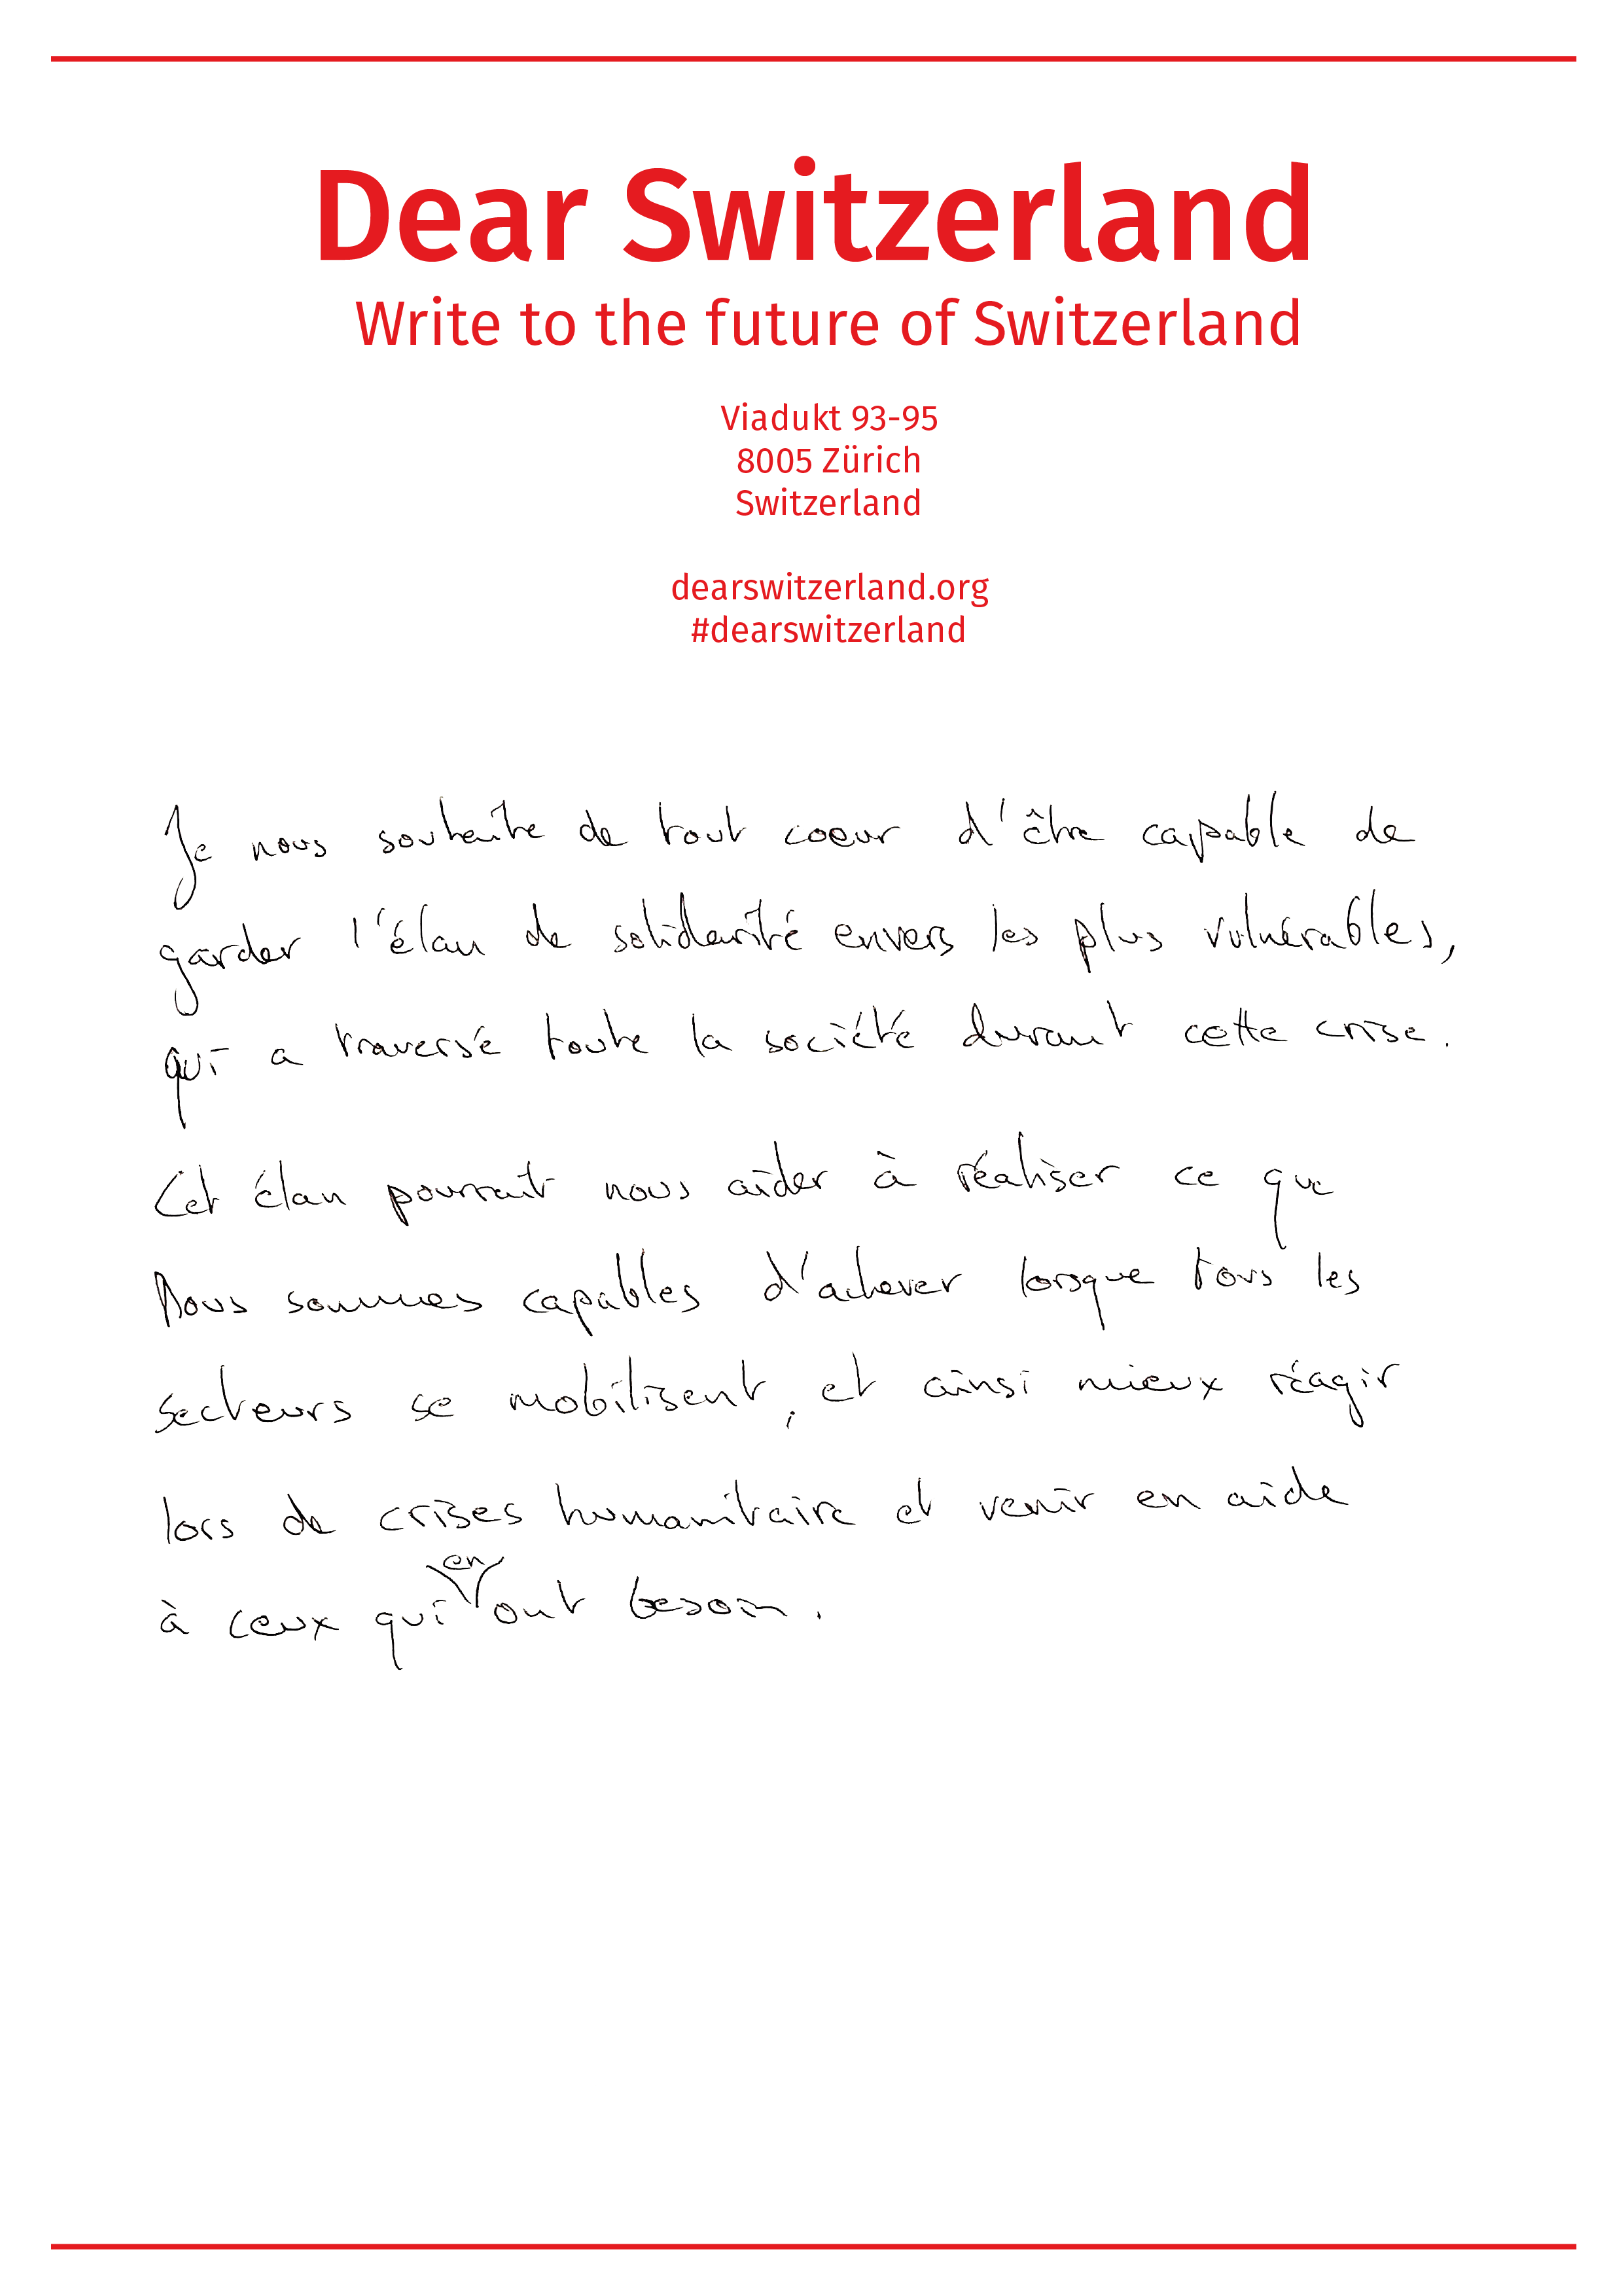 Dear Switzerland
Write to the future of Switzerland
Viadukt 93-95
8005 Zürich
Switzerland
dearswitzerland.org
#dearswitzerland
Je nous souhaite de tout coeur d'être capable de
garder l'élan de solidarité envers les plus vulnérables,
qui a traversé toute la société durant cette crise.
Cet élan pourrait nous aider à réaliser ce que
Nous sommes capables d'achever lorsque tous les
secteurs se mobilisent, et ainsi mieux réagir
lors de crises humanitaire et venir en aide
à ceux qui en ont besoin.